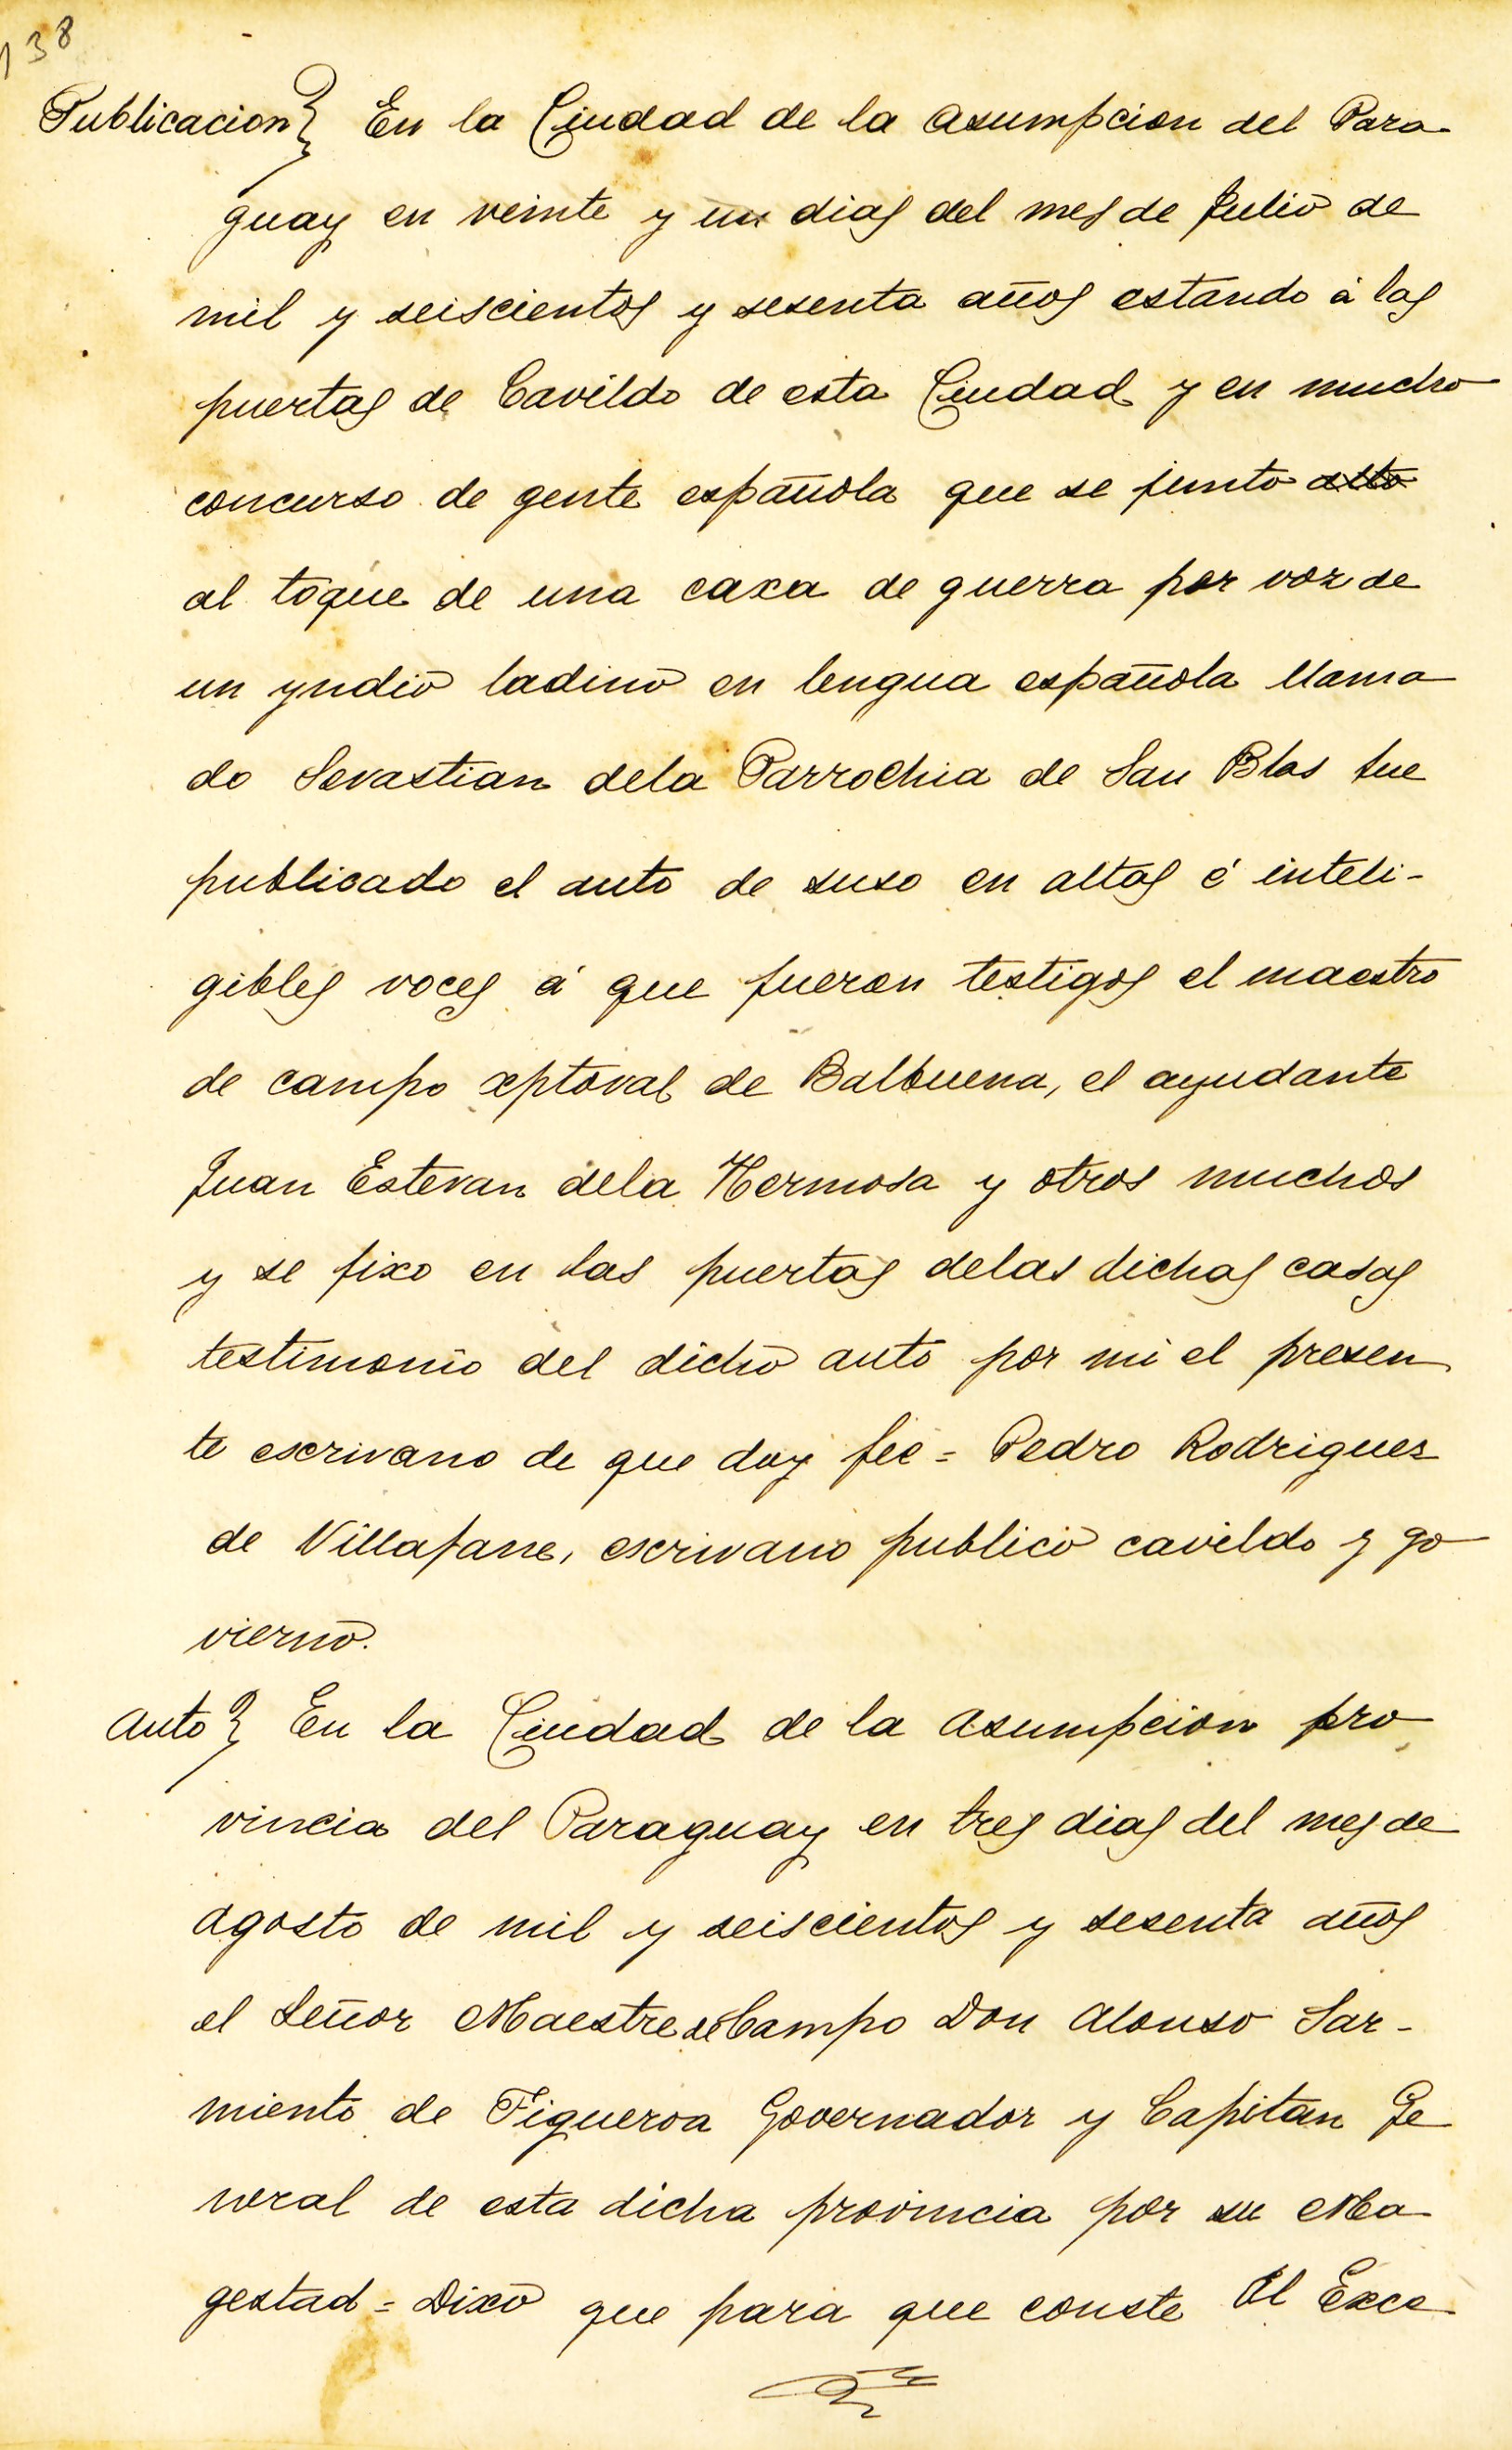 138
Publicacion} En la Ciudad de la Asumpcion del Para-
guay en veinte y un dias del mes de Julio de
mil y seiscientos y sesenta años estando á las
puertas de Cavildo de esta Ciudad y en mucho
concurso de gente española que se junto
al toque de una caxa de guerra por voz de
un yndio ladino en lengua española llama
do Sevastian dela Parrochia de San Blas fue
publicado el auto de suso en altas é inteli-
gibles voces á que fueron testigos el maestro
de campo xptoval de Balbuena, el ayudante
Juan Estevan dela Hermosa y otros muchos
y se fixo en las puertas delas dichas casas
testimonio del dicho auto por mi el presen
te escrivano de que doy fee = Pedro Rodriguez
de Villafane, escrivano publico cavildo y go
vierno.
Auto} En la Ciudad de la Asumpcion pro
vincia del Paraguay en tres dias del mes de
Agosto de mil y seiscientos y sesenta años
el Señor Maestre de Campo Don Alonso Sar-
miento de Figueroa Governador y Capitan Ge
neral de esta dicha provincia por su Ma
gestad = Dixo que para que conste El Exce